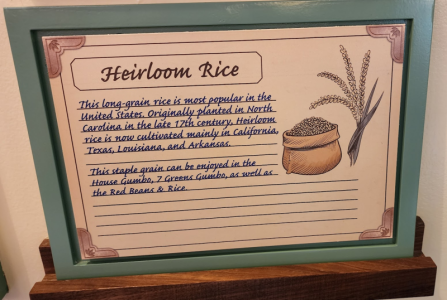 Heirloom Rice
This long-grain rice is most popular in the
United States. Originally planted in North
Carolina in the late 17th century, Heirloom
rice is now cultivated mainly in California,
Texas, Louisiana, and Arkansas.
This staple grain can be enjoyed in the
House Gumbo, 7 Greens Gumbo, as well as
the Red Beans & Rice.